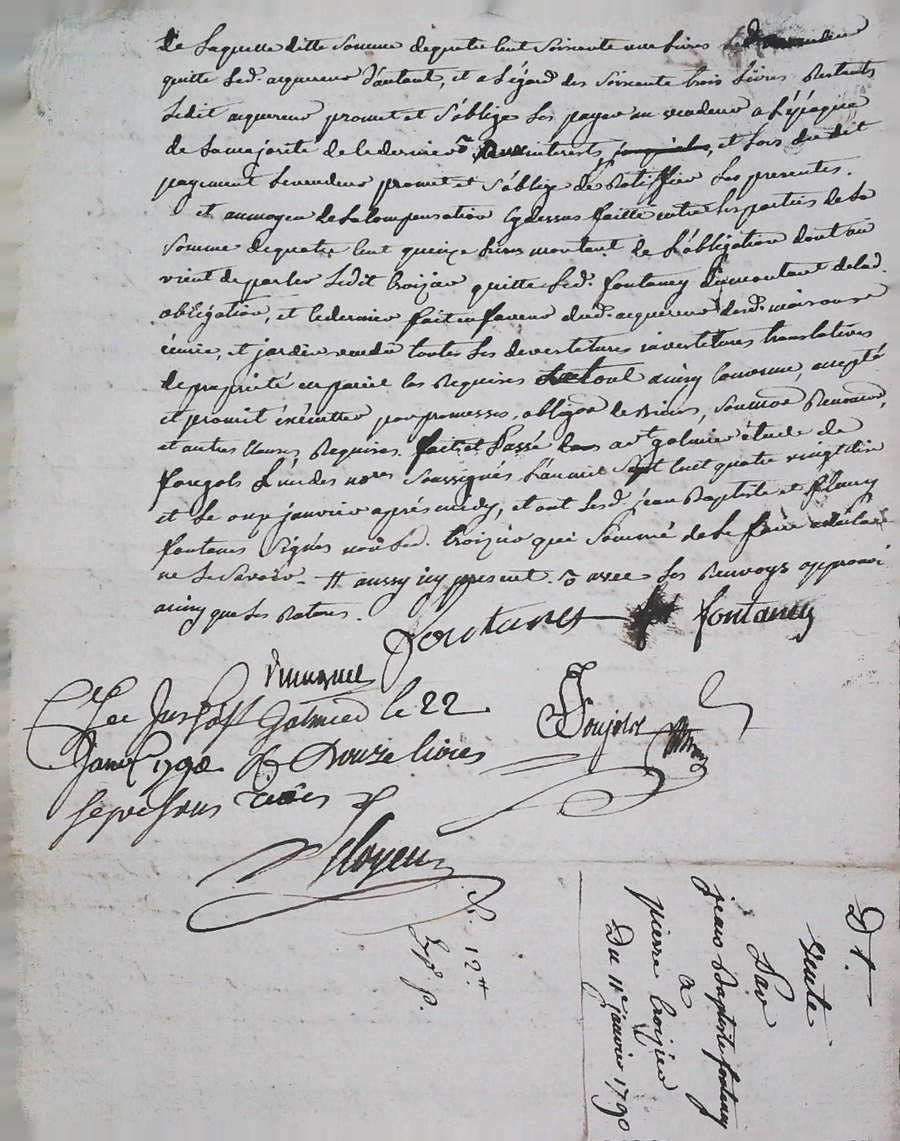 de laquelle ditte somme de quatre cent soixante une livres
quitte led. acquereur d'autant, et a légard des soixante trois livres restants
ledit acquereur promet et s'oblige les payer au vendeur a l'époque
de la majorité de ce dernier interests, et lors du dit
payement le vendeur promet et s'oblige de ratiffier les presentes.
et au moyen de la compensation cydessus faitte entre les parties de la
somme de quatre cent quinze livres montant de l'obligation dont on
vient de parler ledit Croizier quitte led. fontaney du montant de lad.
obligation, et ce dernier fait en faveur dud. acquereur desd. maison
écurie, et jardin vendu toutes les devestitures investitures translatives
de propriété en pareil cas requises le tout ainsy convenu, accepté
et promit éxécutter par promesses, obligaon de biens, soumaon renonaon,
et autres clauses requises. fait et passé a st galmier étude de
l'un des nores soussignés l'an mil sept cent quatre vingt dix
et le onze janvier aprés midy, et ont lesd. jean Baptiste et fleury
fontaney signés non led. Croizier qui sommé de le faire a déclaré
ne le savoir. # aussy icy present. avec les renvoys approuvé
ainsy que les ratures.
fontaney fontaney
galmier le 22
Janer 1790 R Douze livres
sept sous
st.
vente
Par
jean Baptiste fontaney
a
pierre Croizier
Du 11e janvier 1790
R. 12#
Exp. p.